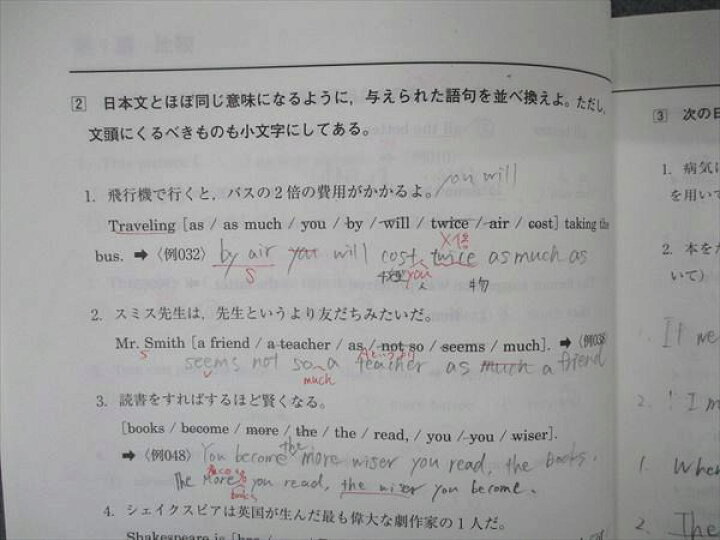 2 日本文とほぼ同じ意味になるように，与えられた語句を並べ換えよ。ただし，
文頭にくるべきものも小文字にしてある。
you will
1. 飛行機で行くと，バスの2倍の費用がかかるよ。
Traveling [as / as much / you / by / will / twice / air / cost] taking the
X倍
bus. ➡〈例032〉 by air you will cost twice as much as
S you
人 物
2. スミス先生は，先生というより友だちみたいだ。
Mr. Smith [a friend / a teacher / as / not so / seems / much]. ➡〈例038
S
seems not so a teacher as much a friend
v much
3. 読書をすればするほど賢くなる。
[books / become / more / the / the / read, / you / you / wiser].
➡〈例048〉 You become the more wiser you read, the books.
The more you read, the wiser you become.
books
4. シェイクスピアは英国が生んだ最も偉大な劇作家の1人だ。
Shakespeare is
3 次の日
1. 病気に
を用いて
2. 本をた
いて)
1.
2. I m
1. When
2. The